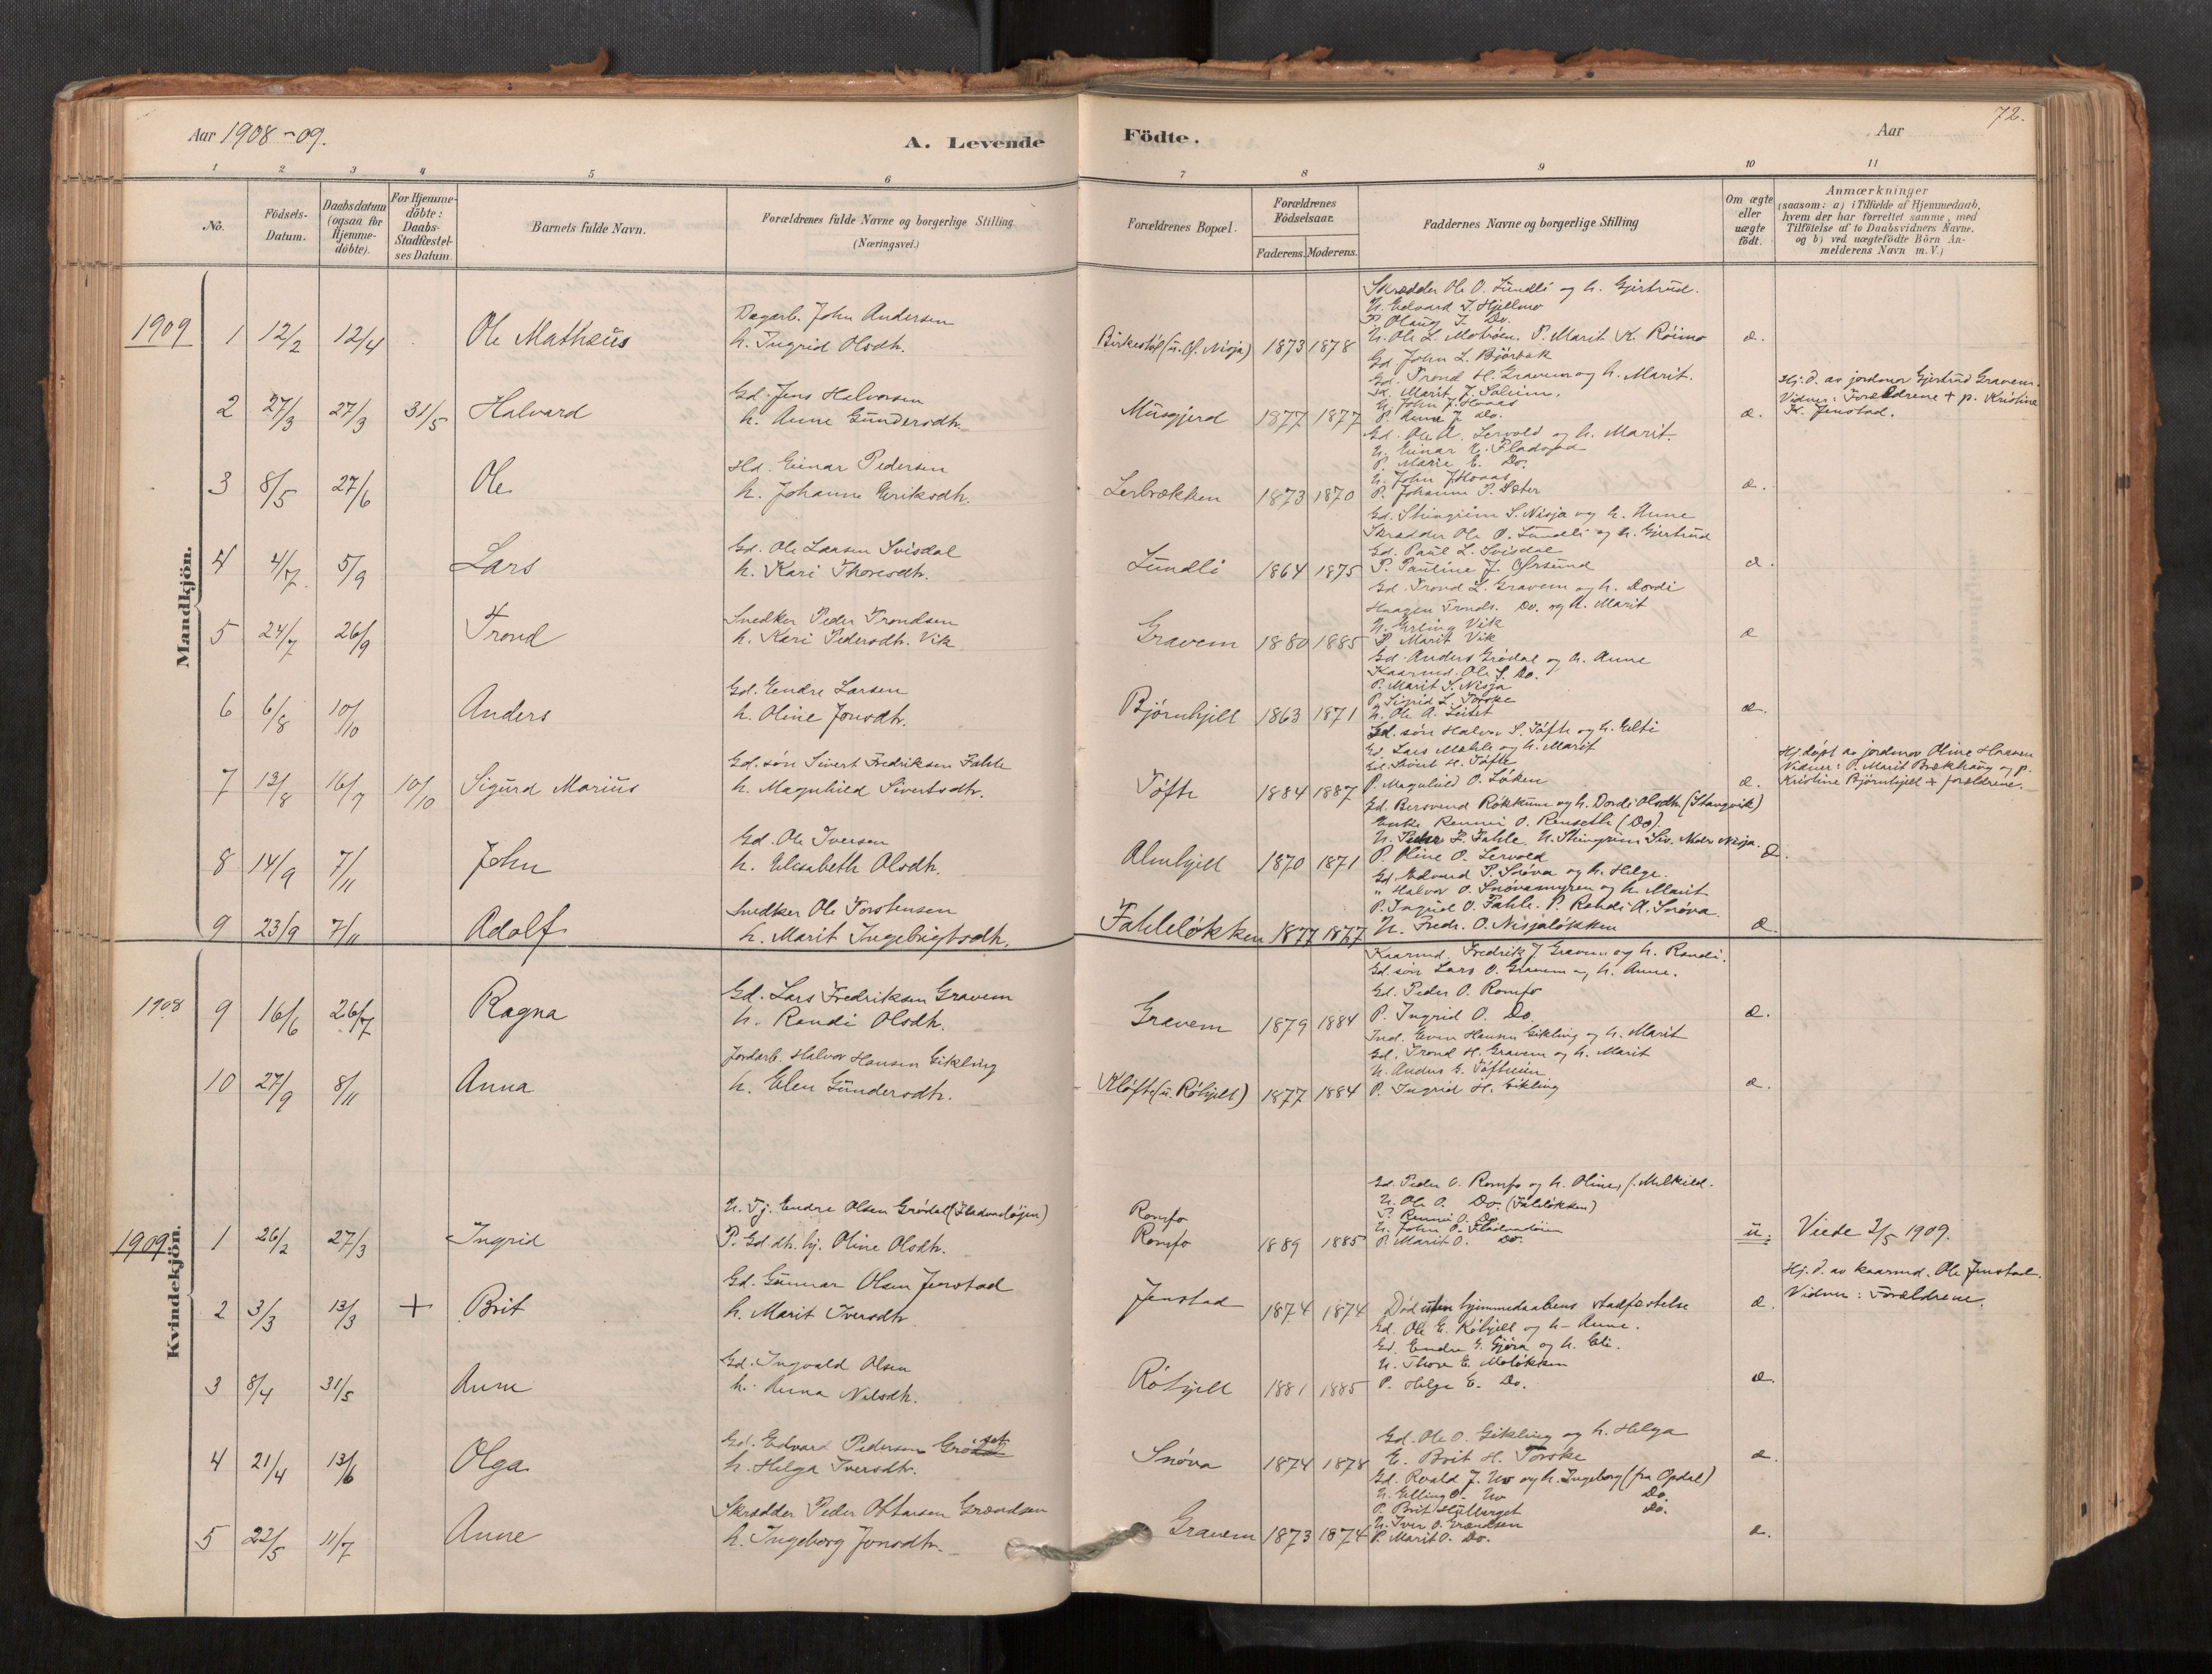 72.
Aar 1908-09. A. Levende Födte. Aar
1 2 3 4 5 6 7 8 9 10 11
No. Födsels-Datum. Daabsdatum (ogsaa for Hjemmedöbte). For Hjemmedöbte: Daabs-Stadfæstelses Datum. Barnets fulde Navn. Forældrenes fulde Navne og borgerlige Stilling (Næringsvei.) Forældrenes Bopæl. Forældrenes Födselsaar. Faderens. Moderens. Faddernes Navne og borgerlige Stilling Om ægte eller uægte födt. Anmærkninger (saasom: a) i Tilfælde af Hjemmedaab, hvem der har forrettet samme, med Tilföielse af to Daabsvidners Navne. og b) ved uægtefödte Börn Anmelderens Navn m.V.)
Mandkjön.
1909 1 12/2 12/4 Ole Mathæus
Dagarb. John Andersen
h. Ingrid Olsdtr.
Birkestøl (u. Nisja) 1873 1878
Skrædder Ole O. Lundli og h. Gjertrud.
U. Edvard J. Hjellmo
P. Olaug J. Do.
U. Ole L. Motröen. P. Marit K. Röimo
Gd. John L. Björbæk
æ.
2 27/3 27/3 31/5 Halvard
Gd. Jens Halvorsen
h. Anne Gundersdtr.
Musgjerd 1877 1877
Gd. Trond H. Gravem og h. Marit.
U. John J. Hovas
P. Anne J. do.
æ.
Hj. d. av jordmor Gjertrud Gravem.
Vidner: Forældrene + p. Kristine
K. Jenstad.
3 8/5 27/6 Ole
Hd. Einar Pedersen
h. Johanne Eriksdtr.
Lerbrækken 1873 1870
Gd. Ole A. Lervold og h. Marit.
U. Einar E. Fladvad
P. Marie E. Do.
U. John J. Hovaas
P. Johanne P. Sæter
æ.
4 4/7 5/9 Lars
Gd. Ole Larsen Svisdal
h. Kari Thoresdtr.
Lundli 1864 1875
Gd. Steingrim S. Nisja og h. Anne
Skrædder Ole O. Lundli og h. Gjertrud
Gd. Paul L. Svisdal
P. Pauline J. Ørsund
æ.
5 24/7 26/9 Trond
Snedker Peder Trondsen
h. Kari Pedersdtr. Vik
Gravem 1880 1885
Gd. Trond L. Gravem og h. Dordi
Haagen Tronds. Do. og h. Marit
U. Erling Vik
P. Marit Vik
æ
6 6/8 10/10 Anders
Gd. Endre Larsen
h. Oline Jonsdtr.
Bjørnhjell 1863 1871
Gd. Anders Grödal og h. Anne
Kaarmd. Ole S. Do.
P. Marit S. Nisja
P. Sigrid L. Torske
U. Ole A. Leitet
æ.
7 13/8 16/9 10/10 Sigurd Marius
Gd. søn Sivert Fredriksen Fahle
h. Magnhild Sivertsdtr.
Töfte 1884 1887
Gd. søn Halvor S. Töfte og h. Eli
Gd. Lars Mæhle og h. Marit
Gd. Sivert H. Töfte
P. Magnhild O. Löken
æ.
Hj. döpt av jordmor Oline Hansen
Vidner: P. Marit Brækhaug og p.
Kristine Björnhjell + forældrene.
8 14/9 7/11 John
Gd. Ole Iversen
h. Elisabeth Olsdtr.
Almhjell 1870 1871
Gd. Bersvend Rökkum og h. Dordi Olsdtr. (Stangvik)
Enke Rennei O. Renseth (Do).
U. Peder F. Fahle. U. Steingrim Siv. Nisja.
P. Oline O. Lervold
æ.
9 23/9 7/11 Adolf
Snedker Ole Torstensen
h. Marit Ingebrigtsdtr.
Fahleløkken 1877 1877
Gd. Edvard P. Snöva og h. Helge.
" Halvor O. Snövasmyren og h. Marit
P. Ingrid O. Fahle. P. Randi A. Snöva.
U. Fredr. O. Nisjaløkken
æ.
Kvindekjön.
1908 9 16/6 26/7 Ragna
Gd. Lars Fredriksen Gravem
h. Randi Olsdtr.
Gravem 1879 1884
Kaarmd. Fredrik J. Gravem og h. Randi.
Gd. søn Lars O. Gravem og h. Anne.
Gd. Peder O. Romfo
P. Ingrid O. Do.
æ.
10 27/9 8/11 Anna
Jordarb. Halvor Hansen Gikling
h. Elen Gundersdtr.
Kløfte (u. Röhjell) 1877 1884
Ind. Even Hansen Gikling og h. Marit
Gd. Trond H. Gravem og h. Marit
U. Anders G. Töftheim
P. Ingrid H. Gikling
æ.
1909 1 26/2 27/3 Ingrid
U. Tj. Endre Olsen Grödal (Fladvadöyen)
P. Gd. dtr. hj. Oline Olsdtr.
Romfo
Romfo 1889 1885
Gd. Peder O. Romfo og h. Oline, f. Melkild.
U. Ole O. Do. (Fahleløkken)
P. Rennei O. Do
U. John O. Fladvadöien
P. Marit O. Do.
u.
Viede 2/5 1909.
2 3/3 13/3 + Brit
Gd. Gunnar Olsen Jenstad
h. Marit Iversdtr.
Jenstad 1874 1874
Død uten hjemmedaabens stadfæstelse
æ.
Hj. d. av kaarmd. Ole Jenstad.
Vidner: Forældrene.
3 8/4 31/5 Anne
Gd. Ingvald Olsen
h. Anna Nilsdtr.
Röhjell 1881 1885
Gd. Ole E. Röhjell og h. Anne.
Gd. Endre E. Gjöra og h. Eli.
U. Thore E. Moløkken
P. Helge E. Do.
æ.
4 21/4 13/6 Olga
Gd. Edvard Pedersen
h. Helga Iversdtr.
Snöva 1874 1878
Gd. Ole O. Gikling og h. Helga
E. Brit H. Torske
æ.
5 22/5 11/7 Anne
Skrædder Peder Ottarsen Grændsen
h. Ingeborg Jonsdtr.
Gravem 1873 1874
Gd. Roald J. Uv og h. Ingeborg (fra Opdal)
U. Elling O. Uv Do.
P. Brit Hjelberget Do.
U. Iver O. Grændsen
P. Marit O. Do.
æ.